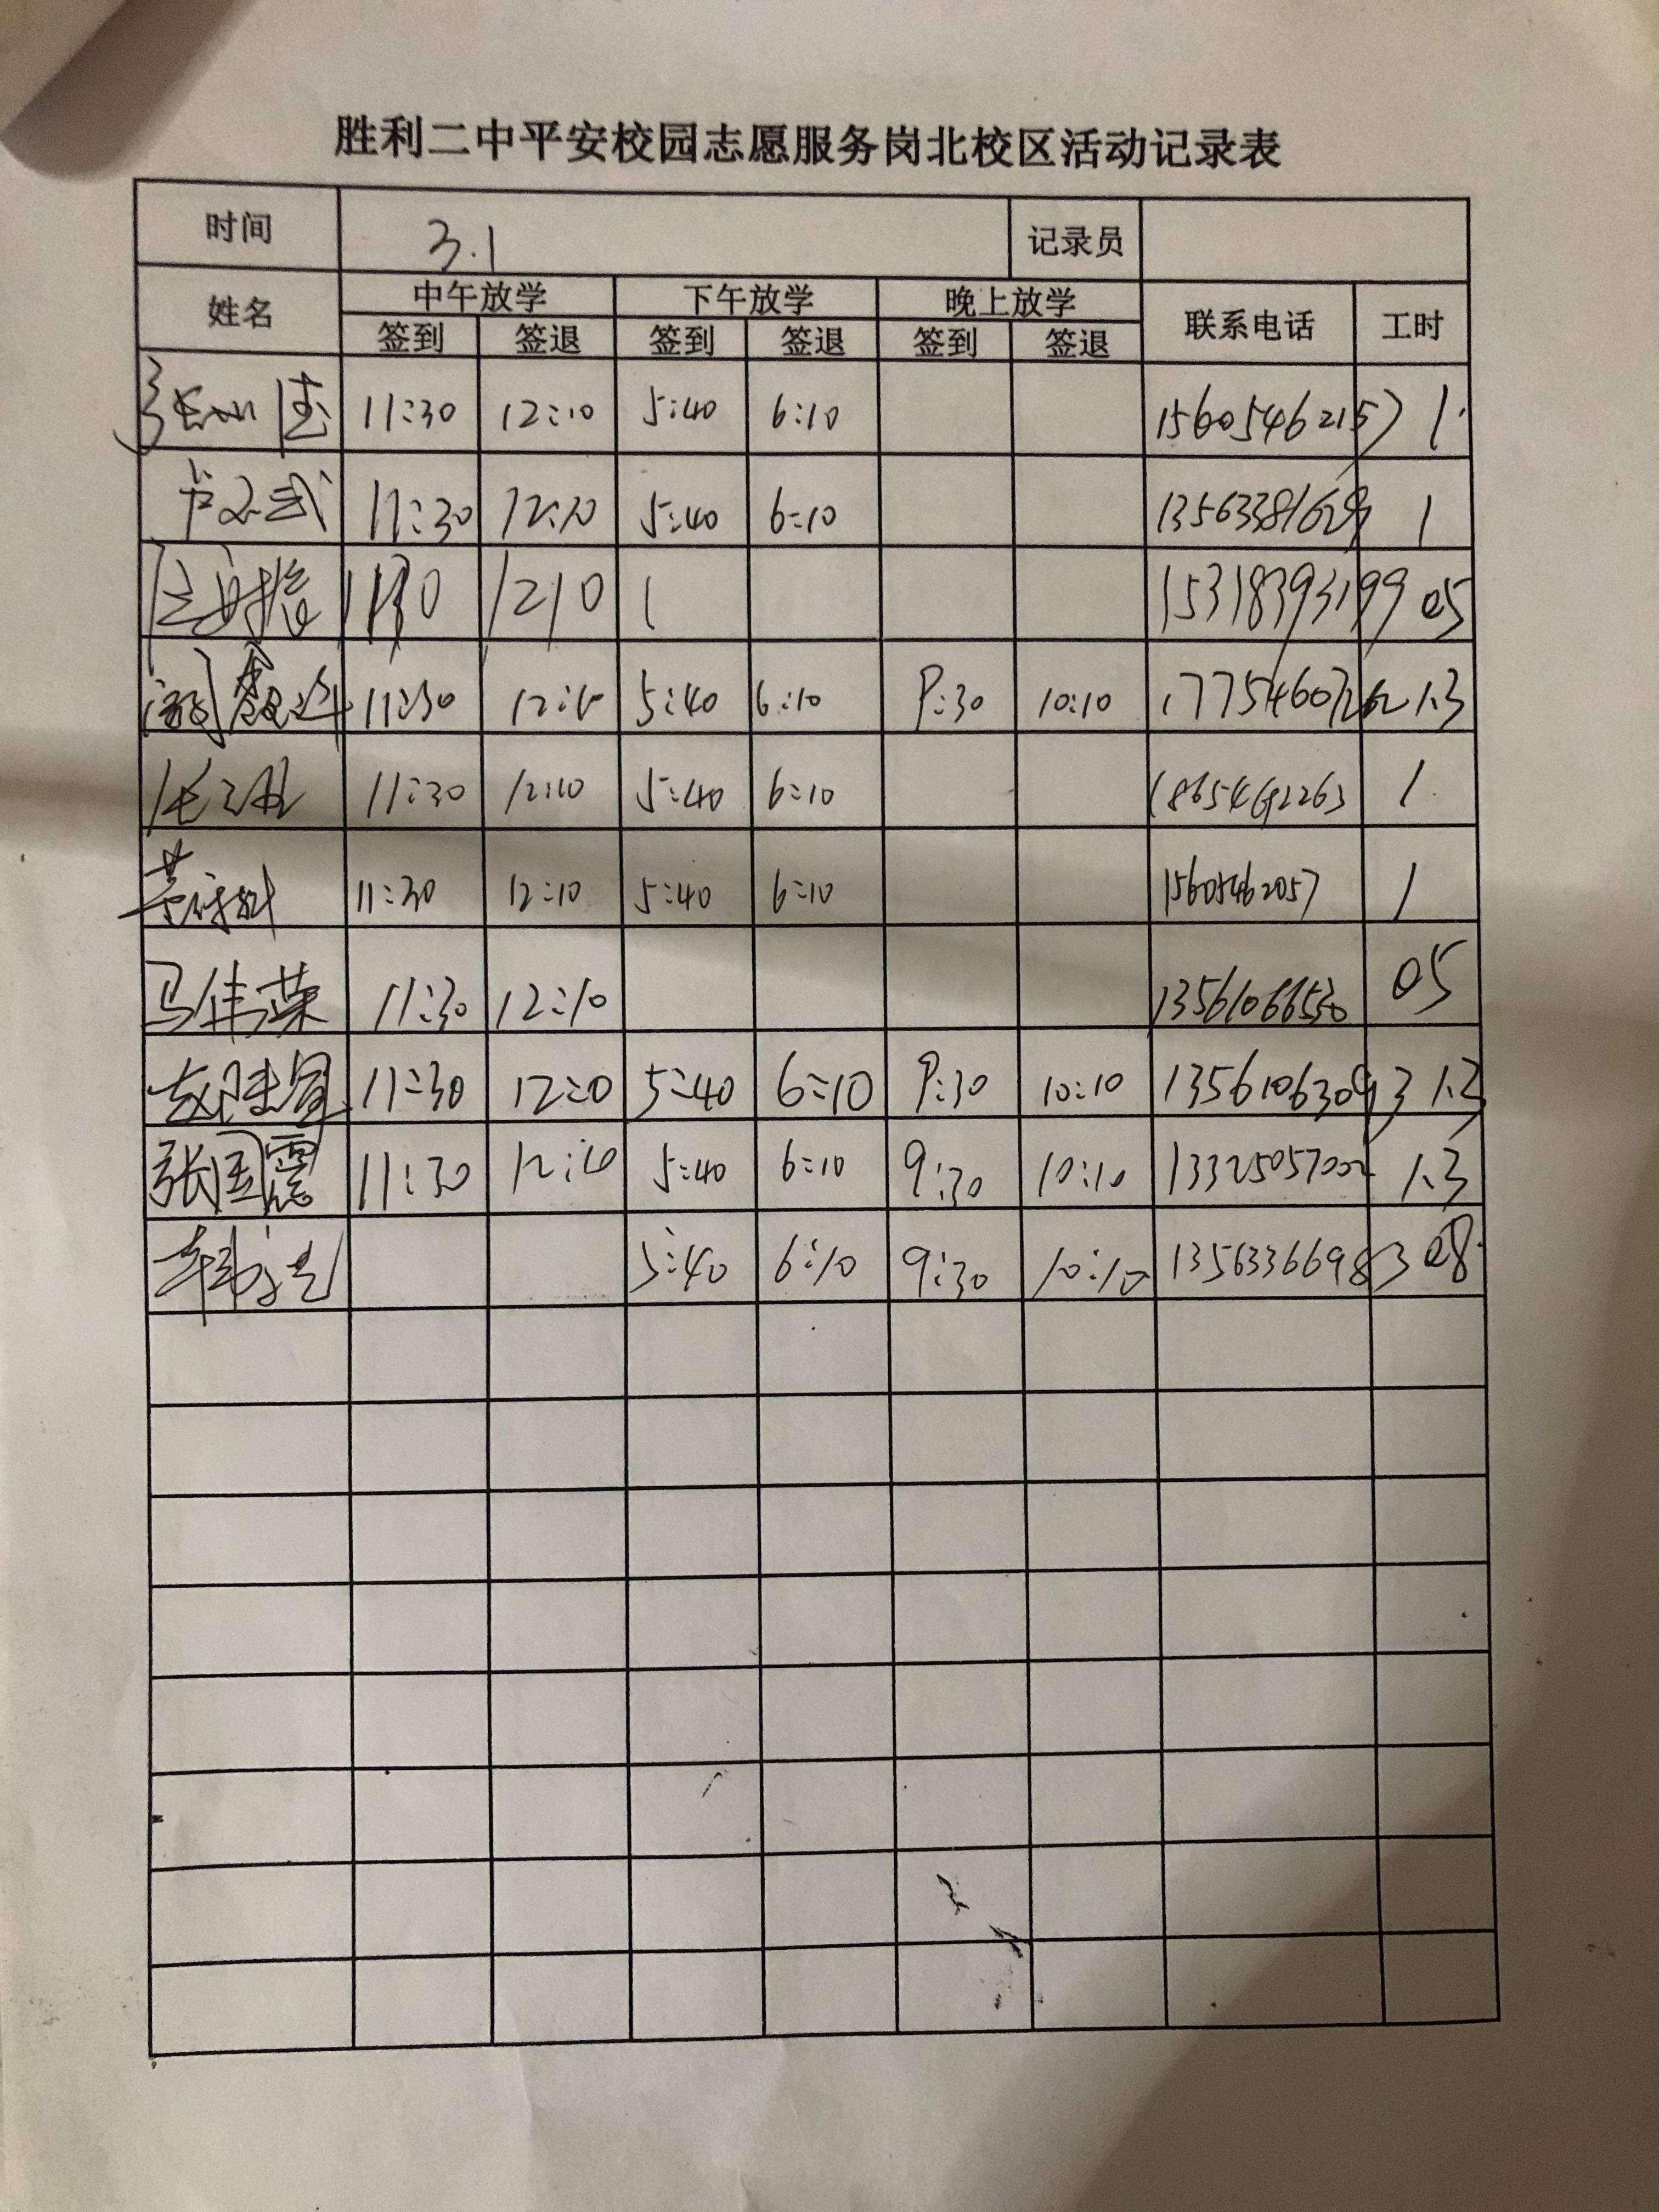 胜利二中平安校园志愿服务岗北校区活动记录表
时间 3.1 记录员
姓名 中午放学 下午放学 晚上放学 联系电话 工时
签到 签退 签到 签退 签到 签退
11:30 12:10 5:40 6:10 15605462157 1
11:30 12:10 5:40 6:10 1
1130 1210 1 15318393199 05
11:30 12:10 5:40 6:10 9:30 10:10 17754607262 1.3
11:30 12:10 5:40 6:10 1
11:30 12:10 5:40 6:10 15605462057 1
马伟荣 11:30 12:10 13561066530 05
11:30 12:10 5:40 6:10 9:30 10:10 13561063093 1.3
张国震 11:30 12:10 5:40 6:10 9:30 10:10 13325057002 1.3
5:40 6:10 9:30 10:10 13563366983 08